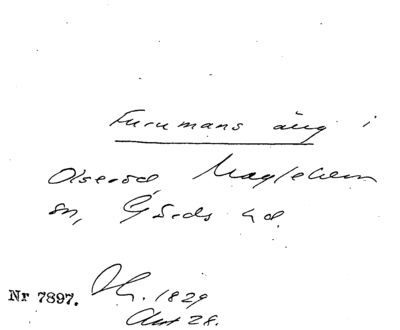 Furumans äng i
Olseröd Maglehem
sn, Gärds hd.
Nr 7897. Dh. 1829
Akt 28.